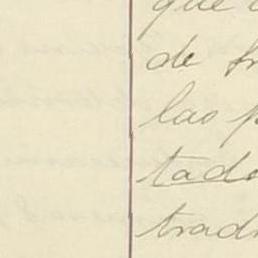 que
de fr
las p
tado
trad